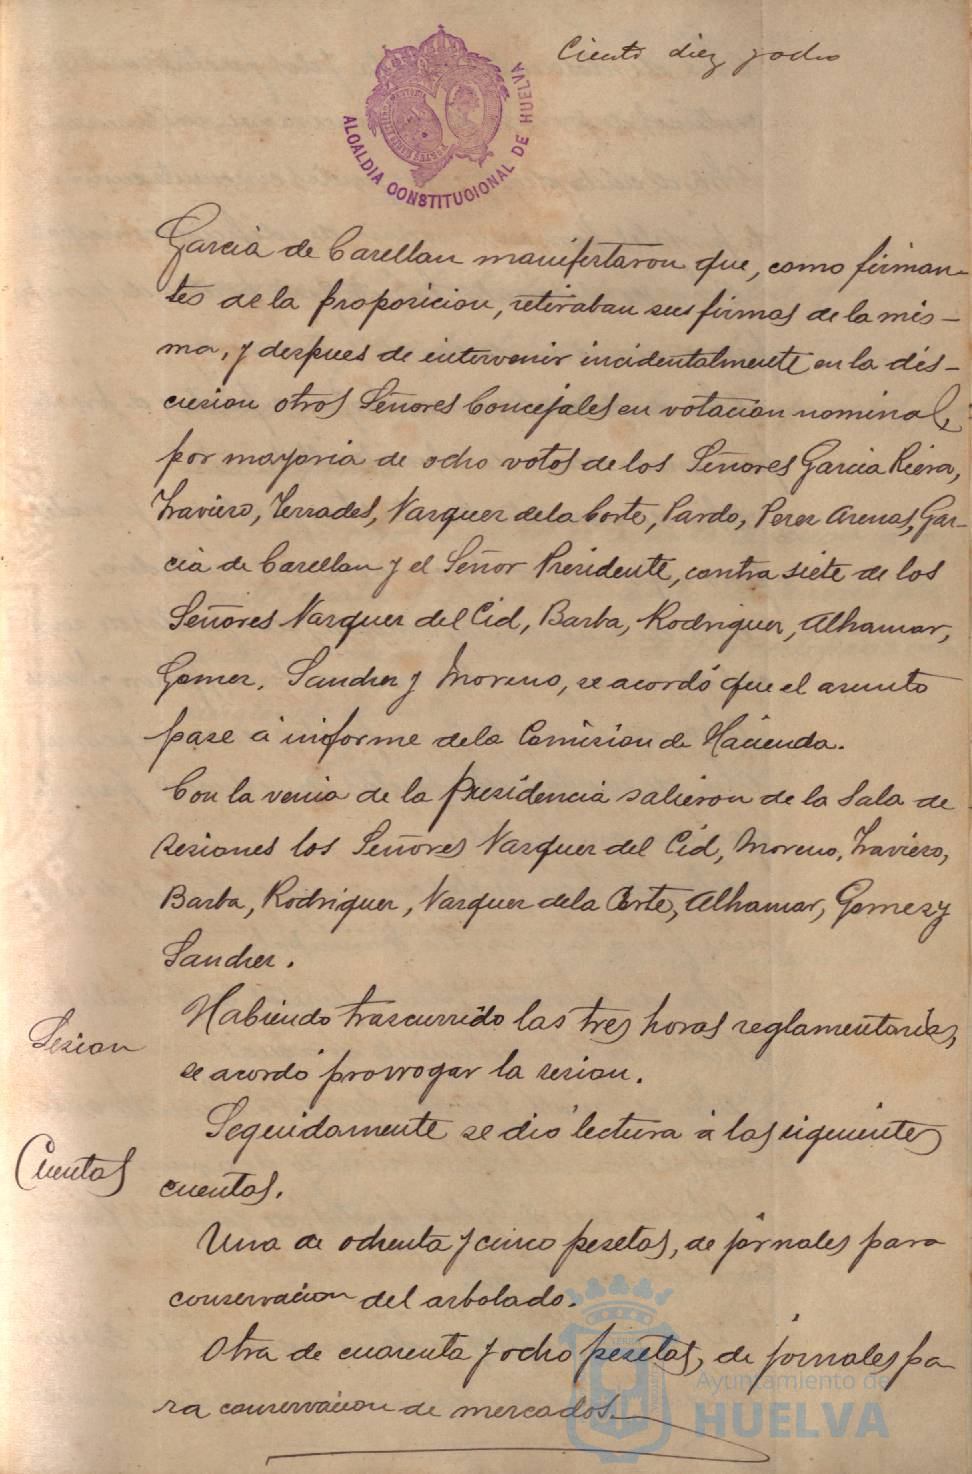 Ciento diez y ocho
ALCALDIA CONSTITUCIONAL DE HUELVA
Garcia de Casellan manifestaron que, como firman-
tes de la proposicion, retiraban sus firmas de la mis-
ma, y despues de intervenir incidentalmente en la dis-
cusion otros Señores Concejales en votacion nominal,
por mayoria de ocho votos de los Señores Garcia Riera,
Traviero, Terrades, Vazquez de la Corte, Pardo, Perez Arenas, Gar-
cia de Casellan y el Señor Presidente, contra siete de los
Señores Vazquez del Cid, Barba, Rodriguez, Alhamar,
Gomez, Sanchez y Moreno, se acordó que el asunto
pase á informe de la Comision de Hacienda.
Con la venia de la Presidencia salieron de la Sala de
sesiones los Señores Vazquez del Cid, Moreno, Traviero,
Barba, Rodriguez, Vazquez de la Corte, Alhamar, Gomez y
Sanchez.
Habiendo trascurrido las tres horas reglamentarias,
Sesion
se acordó prorrogar la sesion.
Seguidamente se dió lectura á las siguientes
Cuentas
cuentas.
Una de ochenta y cinco pesetas, de jornales para
conservacion del arbolado.
Otra de cuarenta y ocho pesetas, de jornales pa
ra conservacion de mercados.
Ayuntamiento de
HUELVA